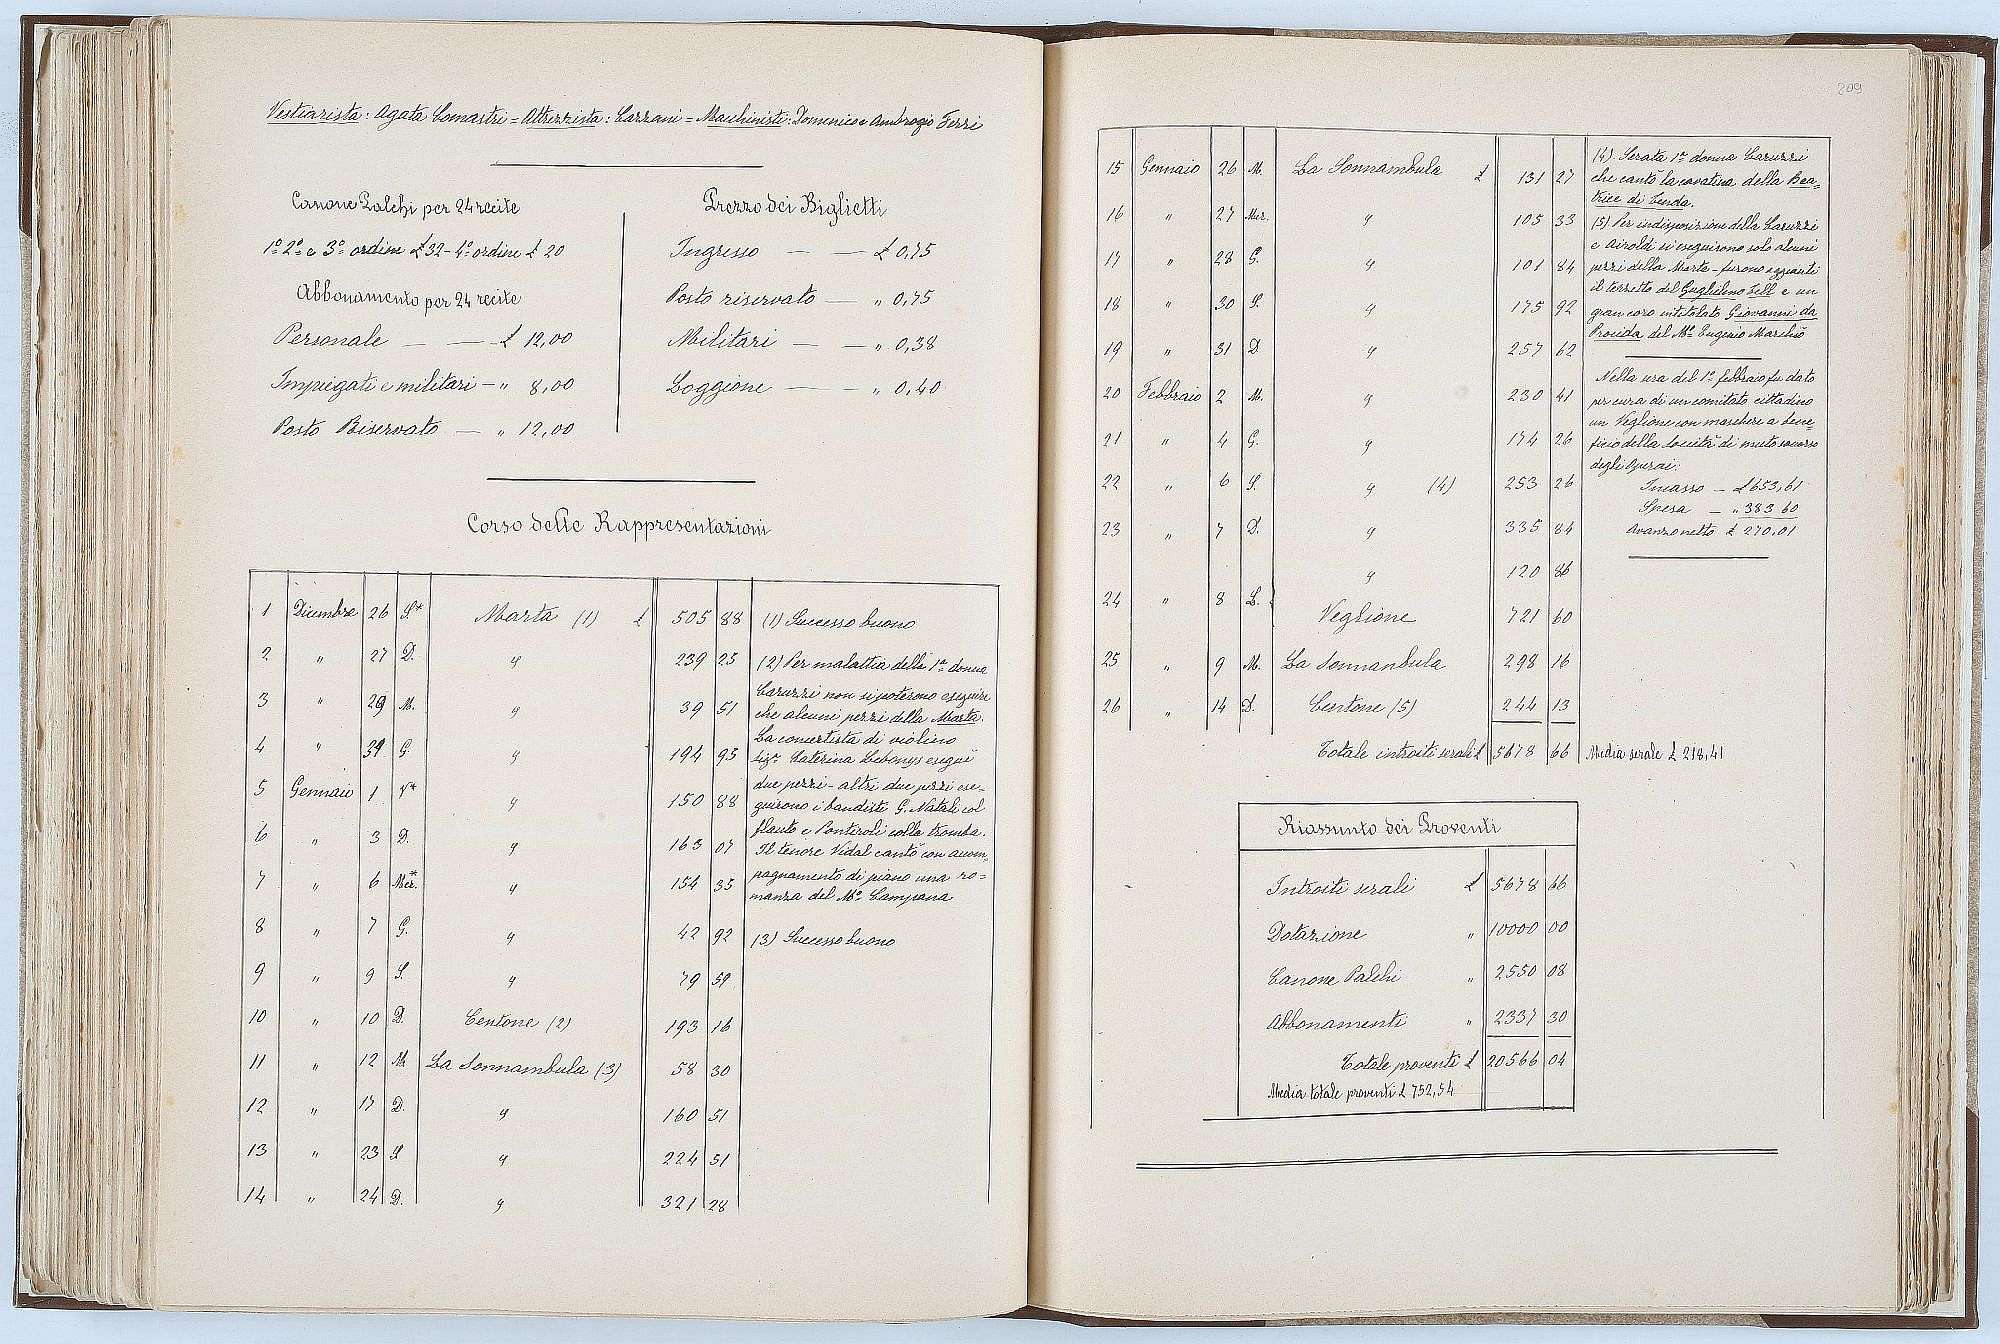 Vestiarista: Agata Comastri = Attrezzista: Cazzani = Macchinisti: Domenico e Ambrogio Ferri
Canone Palchi per 24 recite
1º 2º e 3º ordine £ 32 - 4º ordine £ 20
Abbonamento per 24 recite
Personale — — £ 12,00
Impiegati e militari — „ 8,00
Posto Riservato — „ 12,00
Prezzo dei Biglietti
Ingresso — — £ 0,75
Posto riservato — „ 0,75
Militari — — „ 0,38
Loggione — — „ 0,40
Corso delle Rappresentazioni
1 Dicembre 26 S.* Marta (1) £ 505 88
2 „ 27 D. „ 239 25
3 „ 29 M. „ 39 51
4 „ 31 G. „ 194 95
5 Gennaio 1 V* „ 150 88
6 „ 3 D. „ 163 07
7 „ 6 Mer.* „ 154 35
8 „ 7 G. „ 42 92
9 „ 9 S. „ 79 59
10 „ 10 D. Centone (2) 193 16
11 „ 12 M. La Sonnambula (3) 58 30
12 „ 17 D. „ 160 51
13 „ 23 S „ 224 51
14 „ 24 D. „ 321 28
(1) Successo buono
(2) Per malattia della 1ª donna
Caruzzi non si poterono eseguire
che alcuni pezzi della Marta.
La concertista di violino
Sigª Caterina Lebouys eseguì
due pezzi - altri due pezzi ese-
guirono i bandisti G. Natali col
flauto e Pontiroli colla tromba.
Il tenore Vidal cantò con accom-
pagnamento di piano una ro-
manza del Mº Campana
(3) Successo buono
209
15 Gennaio 26 M. La Sonnambula £ 131 27
16 „ 27 Mer. „ 105 33
17 „ 28 G. „ 101 84
18 „ 30 S. „ 175 92
19 „ 31 D „ 257 62
20 Febbraio 2 M. „ 230 41
21 „ 4 G. „ 174 26
22 „ 6 S. „ (4) 253 26
23 „ 7 D. „ 335 84
„ 120 86
24 „ 8 L.
Veglione 721 60
25 „ 9 M. La Sonnambula 298 16
26 „ 14 D. Centone (5) 244 13
Totale introiti serali £ 5678 66 Media serale £ 218,41
(4) Serata 1ª donna Caruzzi
che cantò la cavatina della Bea-
trice di Tenda.
(5) Per indisposizione della Caruzzi
e Airoldi si eseguirono solo alcuni
pezzi della Marta - furono aggiunti
il terzetto del Guglielmo Tell e un
gran coro intitolato Giovanni da
Procida del Mº Eugenio Marchiò
Nella sera del 1º febbraio fu dato
per cura di un comitato cittadino
un Veglione con maschere a bene-
ficio della Società di mutuo soccorso
degli Operai:
Incasso — £ 653,61
Spesa — „ 383 60
Avanzo netto £ 270,01
Riassunto dei Proventi
Introiti serali £ 5678 66
Dotazione „ 10000 00
Canone Palchi „ 2550 08
Abbonamenti „ 2337 30
Totale proventi £ 20566 04
Media totale proventi £ 752,54